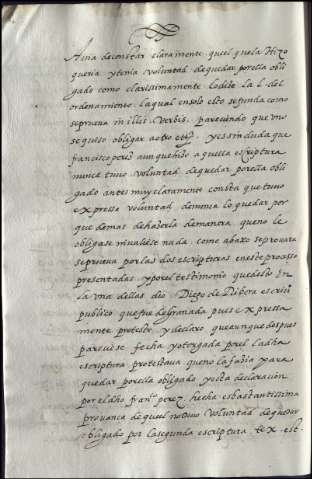 A ssia de constar claramente. que el que la Hizo
queria y tenia voluntad de quedar por ella obli
gado como clarissimamente lo dize la l. del
ordenamiento. la qual en solo esto se funda como
se prueua in illis verbis. pareciendo que vno
se quiso obligar a otro etc. y es sin duda que
francisco perez aunque hizo aquella escriptura
nunca tuuo voluntad de quedar por ella obli
gado antes muy claramente consta que tuuo
expressa voluntad de nunca lo quedar por
que demas de hazerla de manera que no le
obligase ni valiese nada. como abaxo se prouara
se prueua por las dos escripturas en este processo
presentadas. y por el testimonio que dello In
la vna dellas dio Diego de Ribera escriuº
publico que fue de Granada pues expressa
mente protesto y declaro que aunque despues
pareciese fecha y otorgada por el la dha
escriptura protestaua que no la hazia para
quedar por ella obligado y esta declaracion
por el dho franco perez hecha es bastantissima
prouança de que el no tuuo voluntad de quedar
obligado por la segunda escriptura. tex. est.